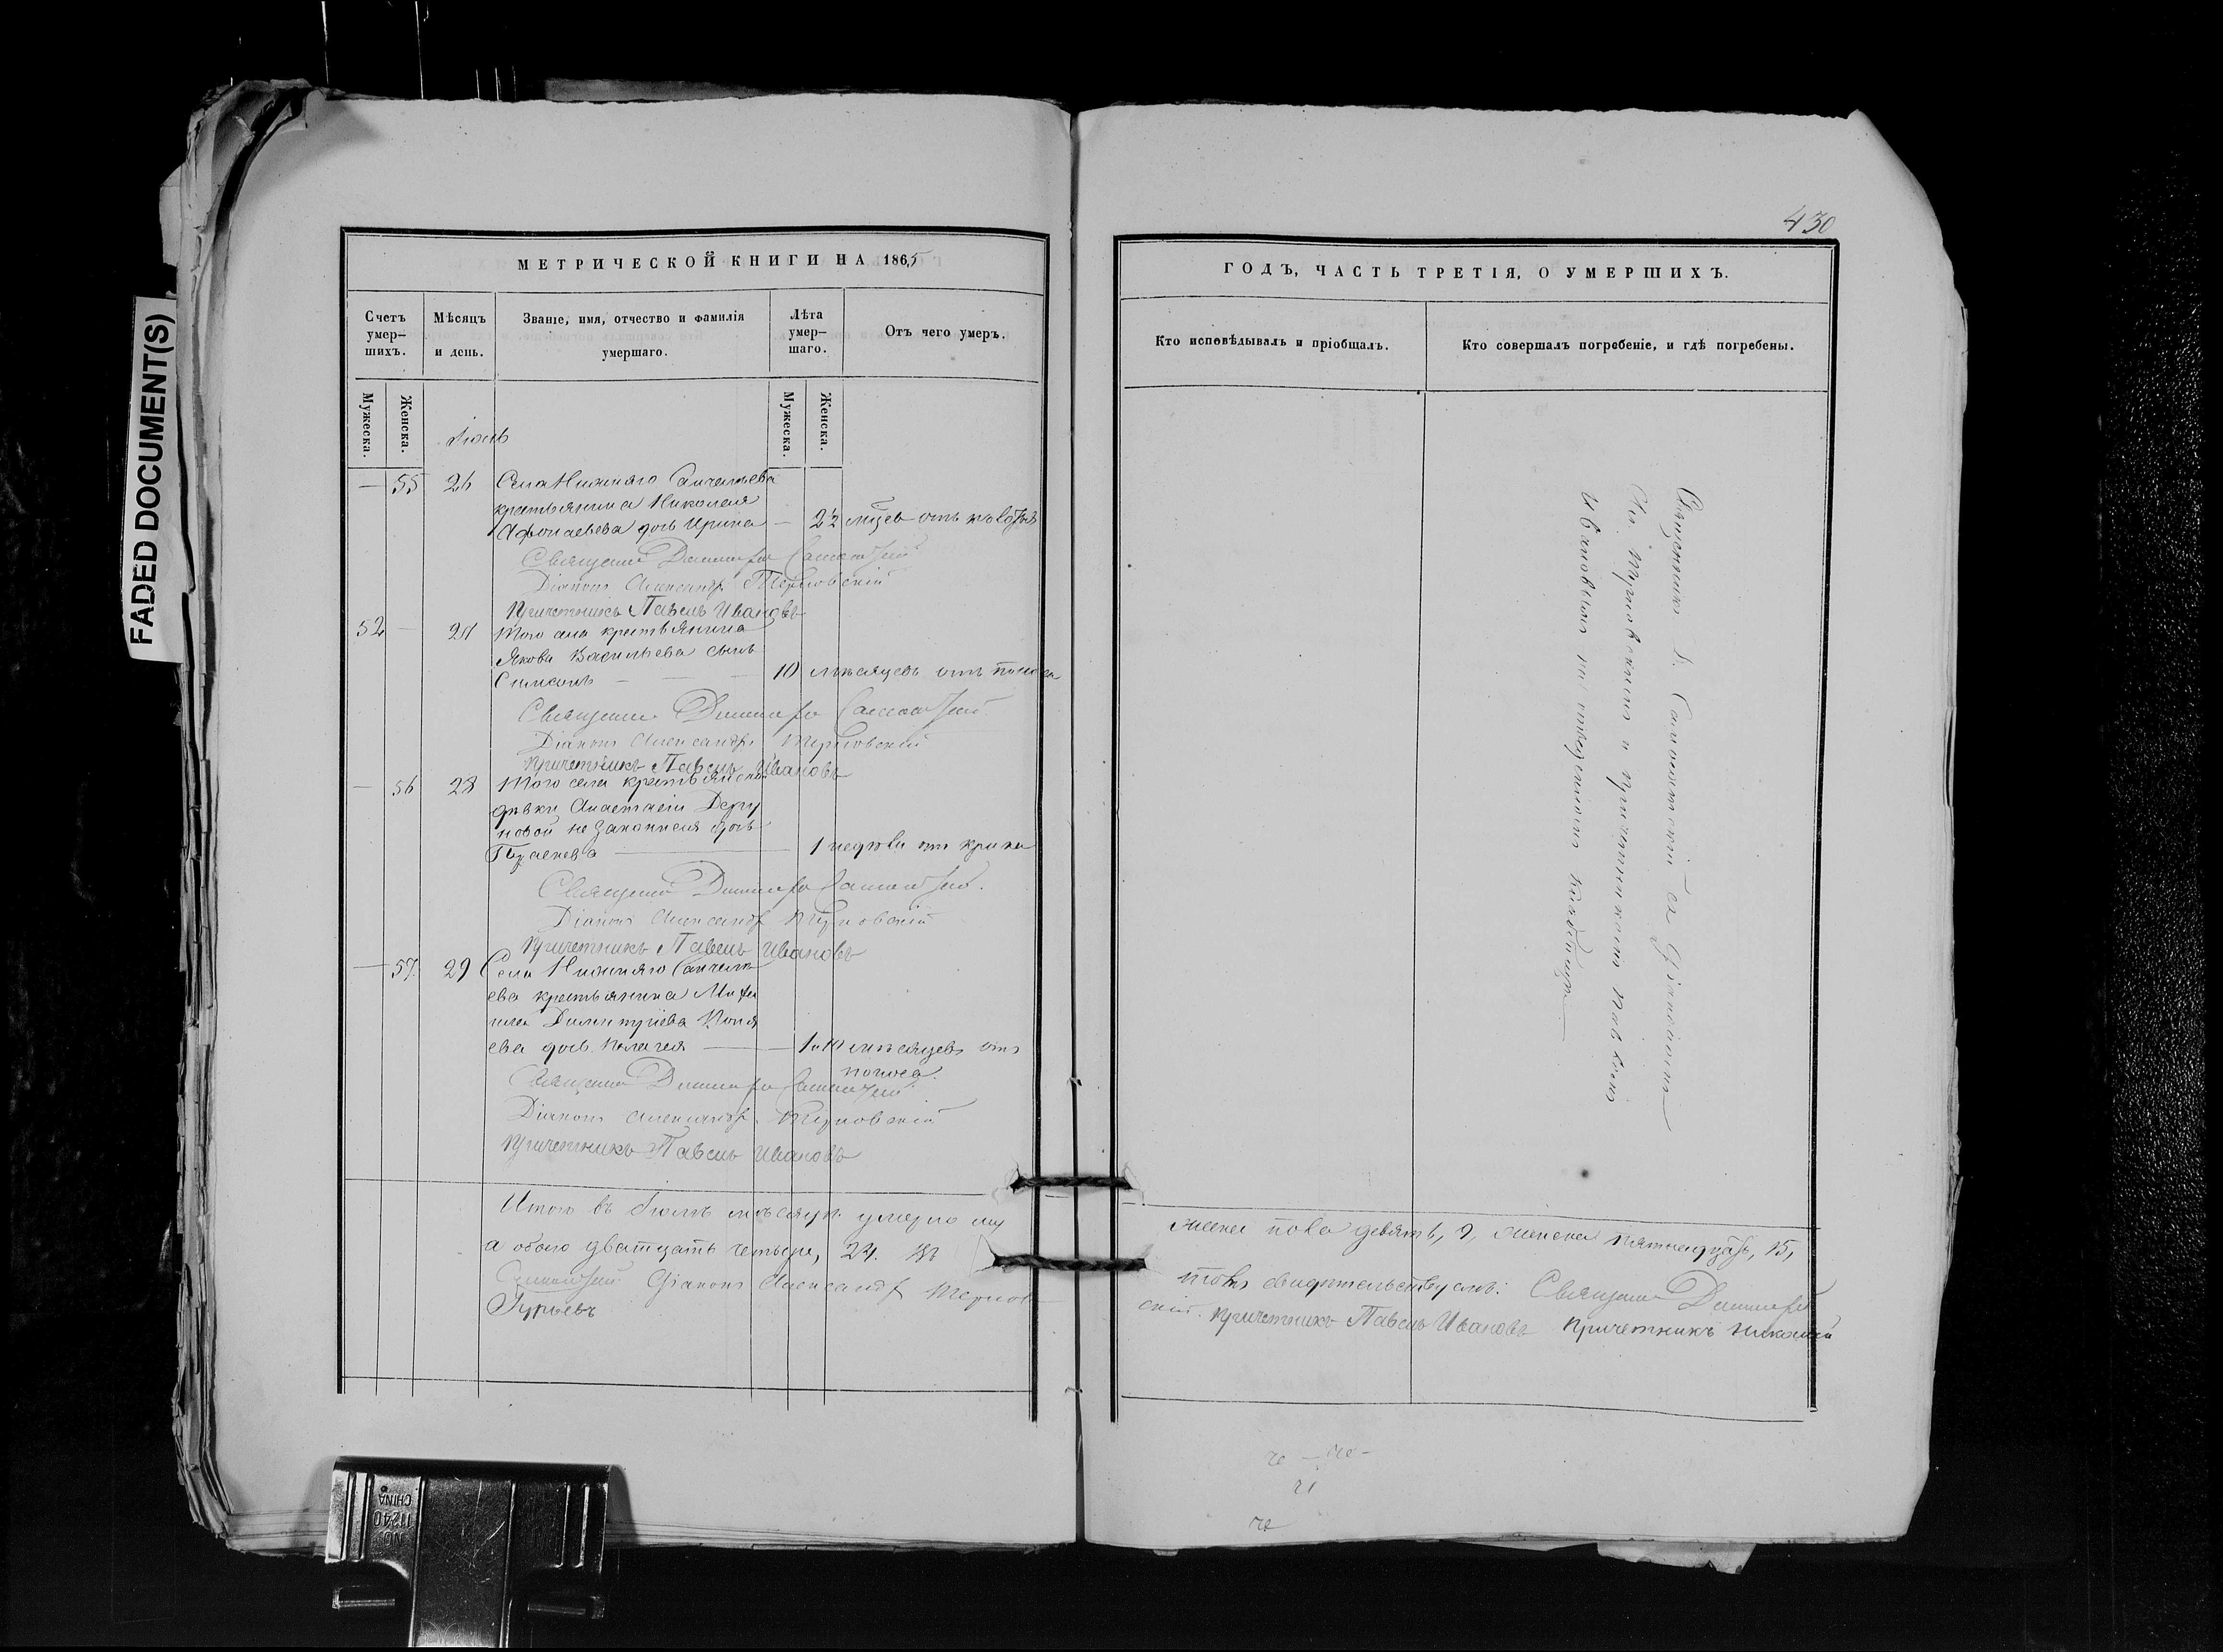 430
МЕТРИЧЕСКОЙ КНИГИ НА 1865
Счетъ умер-шихъ.
Мѣсяцъ и день.
Званіе, имя, отчество и фамилія умершаго.
Лѣта умер-шаго.
Отъ чего умеръ.
Мужеска.
Женска.
Мужеска.
Женска.
Іюль
— 55 26 Села Нижняго Санчелеева
крестьянина Николая
Афонасьева дочь Ирина — 2½ мѣсц
Священникъ Димитрій
Діаконъ Александръ Терновскій
Причетникъ Павелъ Ивановъ
52 — 27 Того села крестьянина
Якова Васильева сынъ
Симеонъ — — — 10 мѣсяцевъ отъ поноса
Священникъ Димитрій
Діаконъ Александръ Терновскій
Причетникъ Павелъ Ивановъ
— 56 28 Того села крестьянской
дѣвки Анастасіи Дергу
новой не законная дочь
1 недѣли отъ крика
Священникъ Димитрій
Діаконъ Александръ Терновскій
Причетникъ Павелъ Ивановъ
— 57. 29 Села Нижняго Санчеле
ева крестьянина
Димитріева
ева дочь Пелагея — 1 и 10 мѣсяцевъ отъ
поноса.
Священникъ Димитрій
Діаконъ Александръ Терновскій
Причетникъ Павелъ Ивановъ
Итого въ Іюлѣ мѣсяцѣ умерло му
а обоего двадцать четыре, 24. Въ
Діаконъ Александръ Тернов
Гурьевъ
ГОДЪ, ЧАСТЬ ТРЕТІЯ, О УМЕРШИХЪ.
Кто исповѣдывалъ и пріобщалъ.
Кто совершалъ погребеніе, и гдѣ погребены.
Священникъ Д. съ Діакономъ
Ал. Терновскимъ и причетникомъ Павломъ
Ивановымъ на отведенномъ кладбищѣ
жеска пола девять, 9, женска пятнадцать, 15,
томъ свидѣтельствуемъ: Священникъ Димитрій
скій. Причетникъ Павелъ Ивановъ Причетникъ Николай
FADED DOCUMENT(S)
CHINA
11240